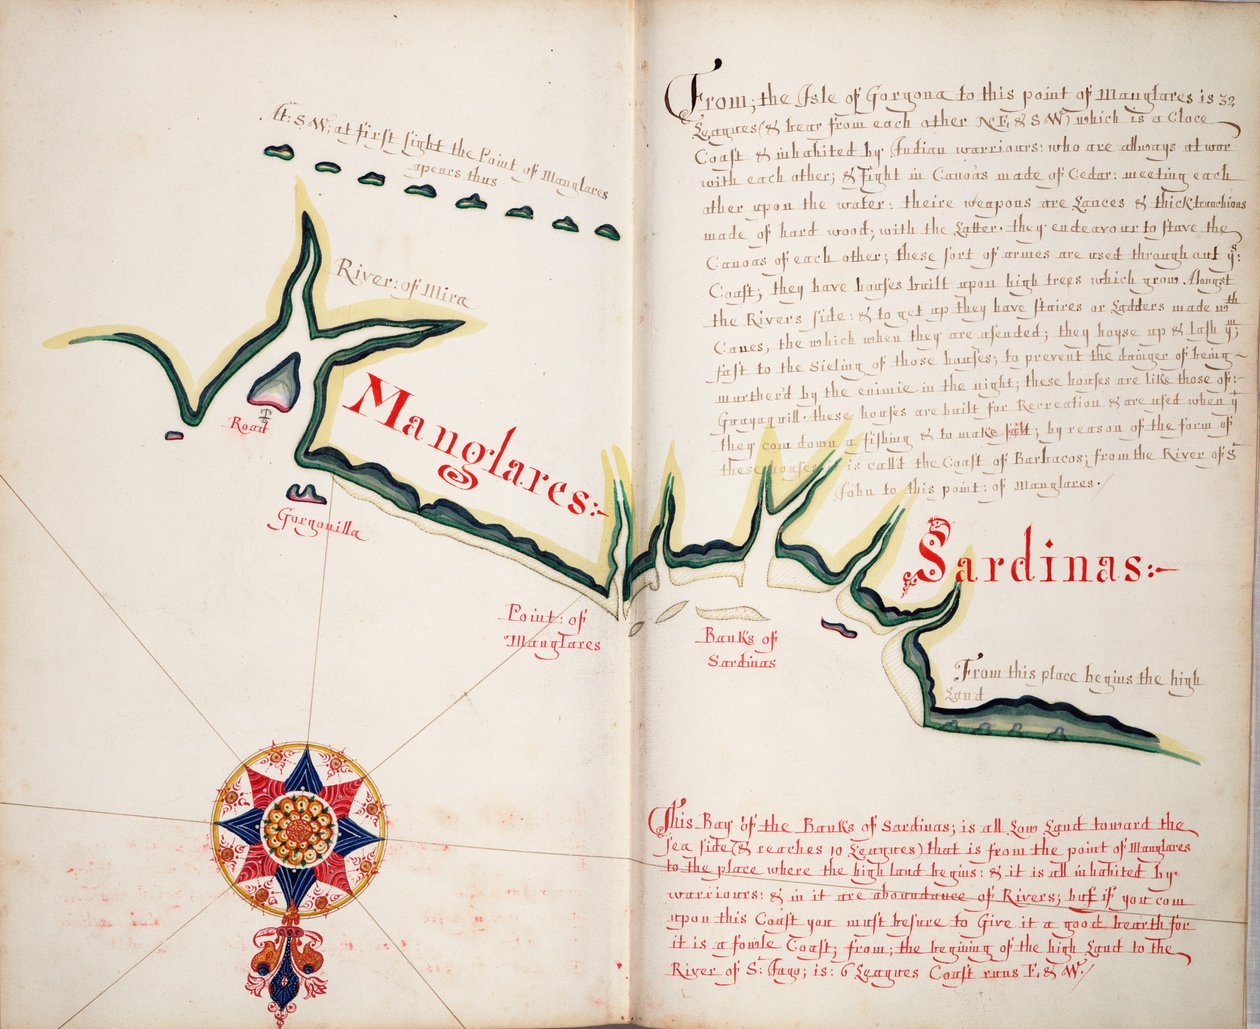 At: S:W; at first sight the Point of Manglares
apears thus
River: of Mira
Manglares:-
Road
Gorgonilla
Point: of
Manglares
From; the Isle of Gorgona to this point of Manglares is 32
Leagues (& bear from each other N:E, & S:W) which is a Cloce
Coast & inhabited by Indian warriours: who are allways at war
with each other; & Fight in Canoas made of Cedar: meeting each
other upon the water: theire weapons are Lances & thick trunchions
made of hard wood; with the Latter they endeavour to stave the
Canoas of each other; these sort of armes are used through out yᵉ:
Coast; they have houses built upon high trees which grow Alongst
the Rivers side: & to get up they have staires or Ladders made wᵗʰ
Canes, the which when they are asended; they hoyse up & lash yᵐ;
fast to the Sieling of those houses; to prevent the dainger of being
murther'd by the enimie in the night; these houses are like those of:
Guayaquill: these houses are built for Recreation & are used when yᵗ
they com down a fishing & to make salt; by reason of the form of
these houses it is call'd the Coast of Barbacos; from the River of Sᵗ
John to this point: of Manglares.
Sardinas:-
Banks of
Sardinas
From this place begins the high
Land
This Bay of the Banks of Sardinas; is all Low Land toward the
sea side (& reaches 10 Leagues) that is from the point of Manglares
to the place where the high land begins: & it is all inhabited by
warriours: & in it are aboundance of Rivers; but if you com
upon this Coast you must besure to Give it a good bearth for
it is a fowle Coast; from; the begining of the high Land to the
River of S: Jago; is: 6 Leagues Coast runs E, & W.